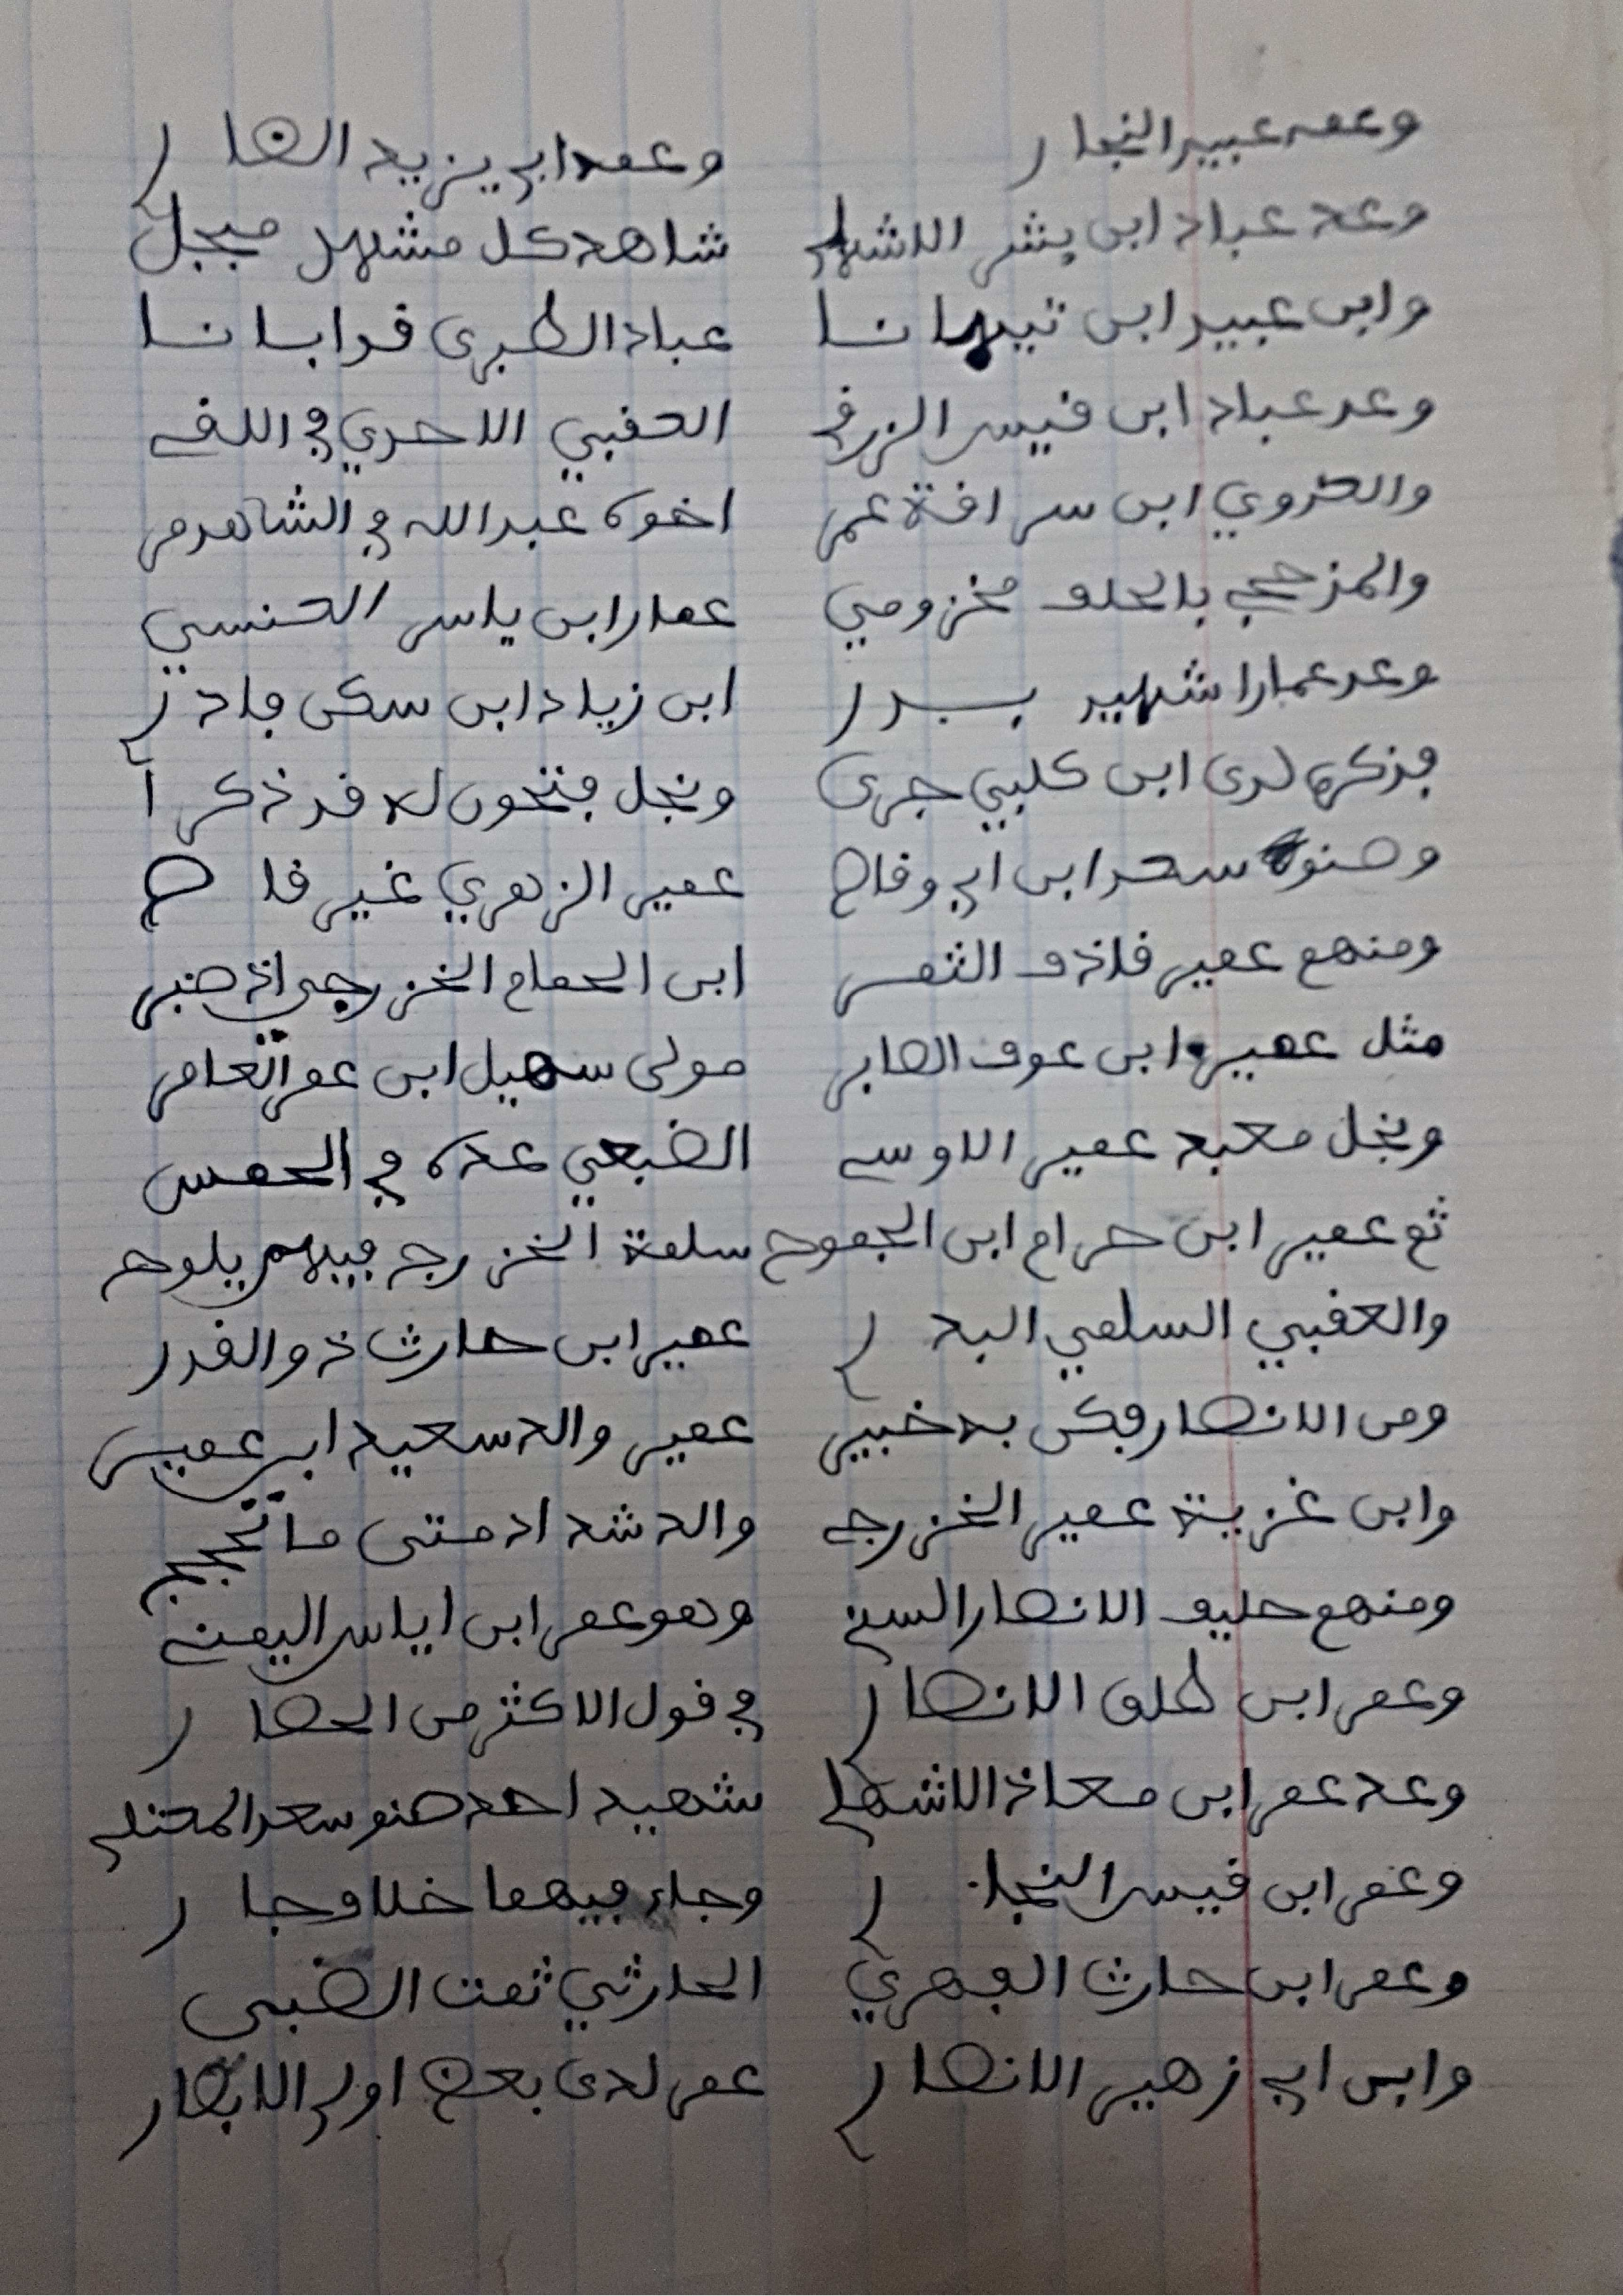 وعمه عبيد النجار وعمه ابي يزيد الضار
وعد عباد ابن بشر الاشهل شاهد كل مشهد مبجل
وابن عبيد ابن تيهانا عباد الطبرى قد ابانا
وعد عباد ابن قيس الزرقي العقبي الاحدي في اللقى
والعدوي ابن سراقة عمر اخوه عبد الله في الشاهد مر
والمذحجي بالحلف مخزومي عمار ابن ياسر العنسي
وعد عمارا شهيد بدر ابن زياد ابن سكن فادر
فذكره لدى ابن كلبي جرى ونجل فتحون له قد ذكرا
وصنوه سعد ابن ابي وقاص عمير الزهري غير قاص
ومنهم عمير قاذف الثمر ابن الحمام الخزرجي اذ صبر
مثل عمير ابن عوف الصابر مولى سهيل ابن عمر العامر
ونجل معبد عمير الاوسي الضبعي عده في الحمس
ثم عمير ابن حرام ابن الجموح سلمة الخزرج فيهم يلوح
والعقبي السلمي البدر عمير ابن حارث ذو القدر
ومن الانصار فكن به خبير عمير والد سعيد ابن عمير
وابن غزية عمير الخزرجي والد شداد متى ما تحجج
ومنهم حليف الانصار السني وهو عمر ابن اياس اليمني
وعمر ابن طلق الانصار في قول الاكثر من الحضار
وعد عمر ابن معاذ الاشهلي شهيد احد صنو سعد المعتلي
وعمر ابن قيس النجار وجاء فيهما خلاف جار
وعمر ابن حارث الفهري الحارثي ثمت الضبي
وابن ابي زهير الانصار عمر لدى بعض اولي الابصار